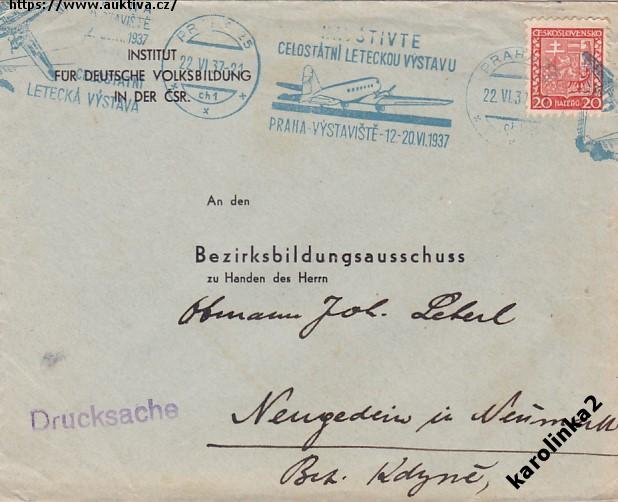 https://www.auktiva.cz/
INSTITUT
FÜR DEUTSCHE VOLKSBILDUNG
IN DER ČSR.
1937
LETECKÁ VÝSTAVA
22 VI 37-21
ch1
CELOSTÁTNÍ LETECKOU VÝSTAVU
PRAHA-VÝSTAVIŠTĚ-12-20.VI.1937
PRAHA
22 VI 37
ČESKOSLOVENSKO
20 HALÉŘŮ 20
An den
Bezirksbildungsausschuss
zu Handen des Herrn
Obmann Joh. Leberl
Drucksache
Neugedein in
Bez. Kdyně,
karolinka2